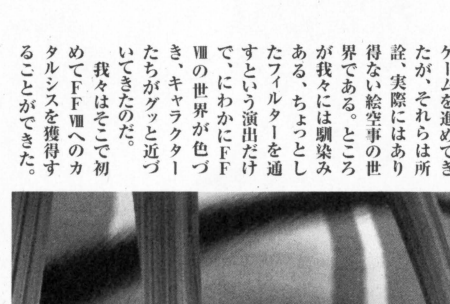 ゲームを進めてき
たが、それらは所
詮、実際にはあり
得ない絵空事の世
界である。ところ
が我々には馴染み
ある、ちょっとし
たフィルターを通
すという演出だけ
で、にわかにFF
Ⅷの世界が色づ
き、キャラクター
たちがグッと近づ
いてきたのだ。
我々はそこで初
めてFFⅧへのカ
タルシスを獲得す
ることができた。